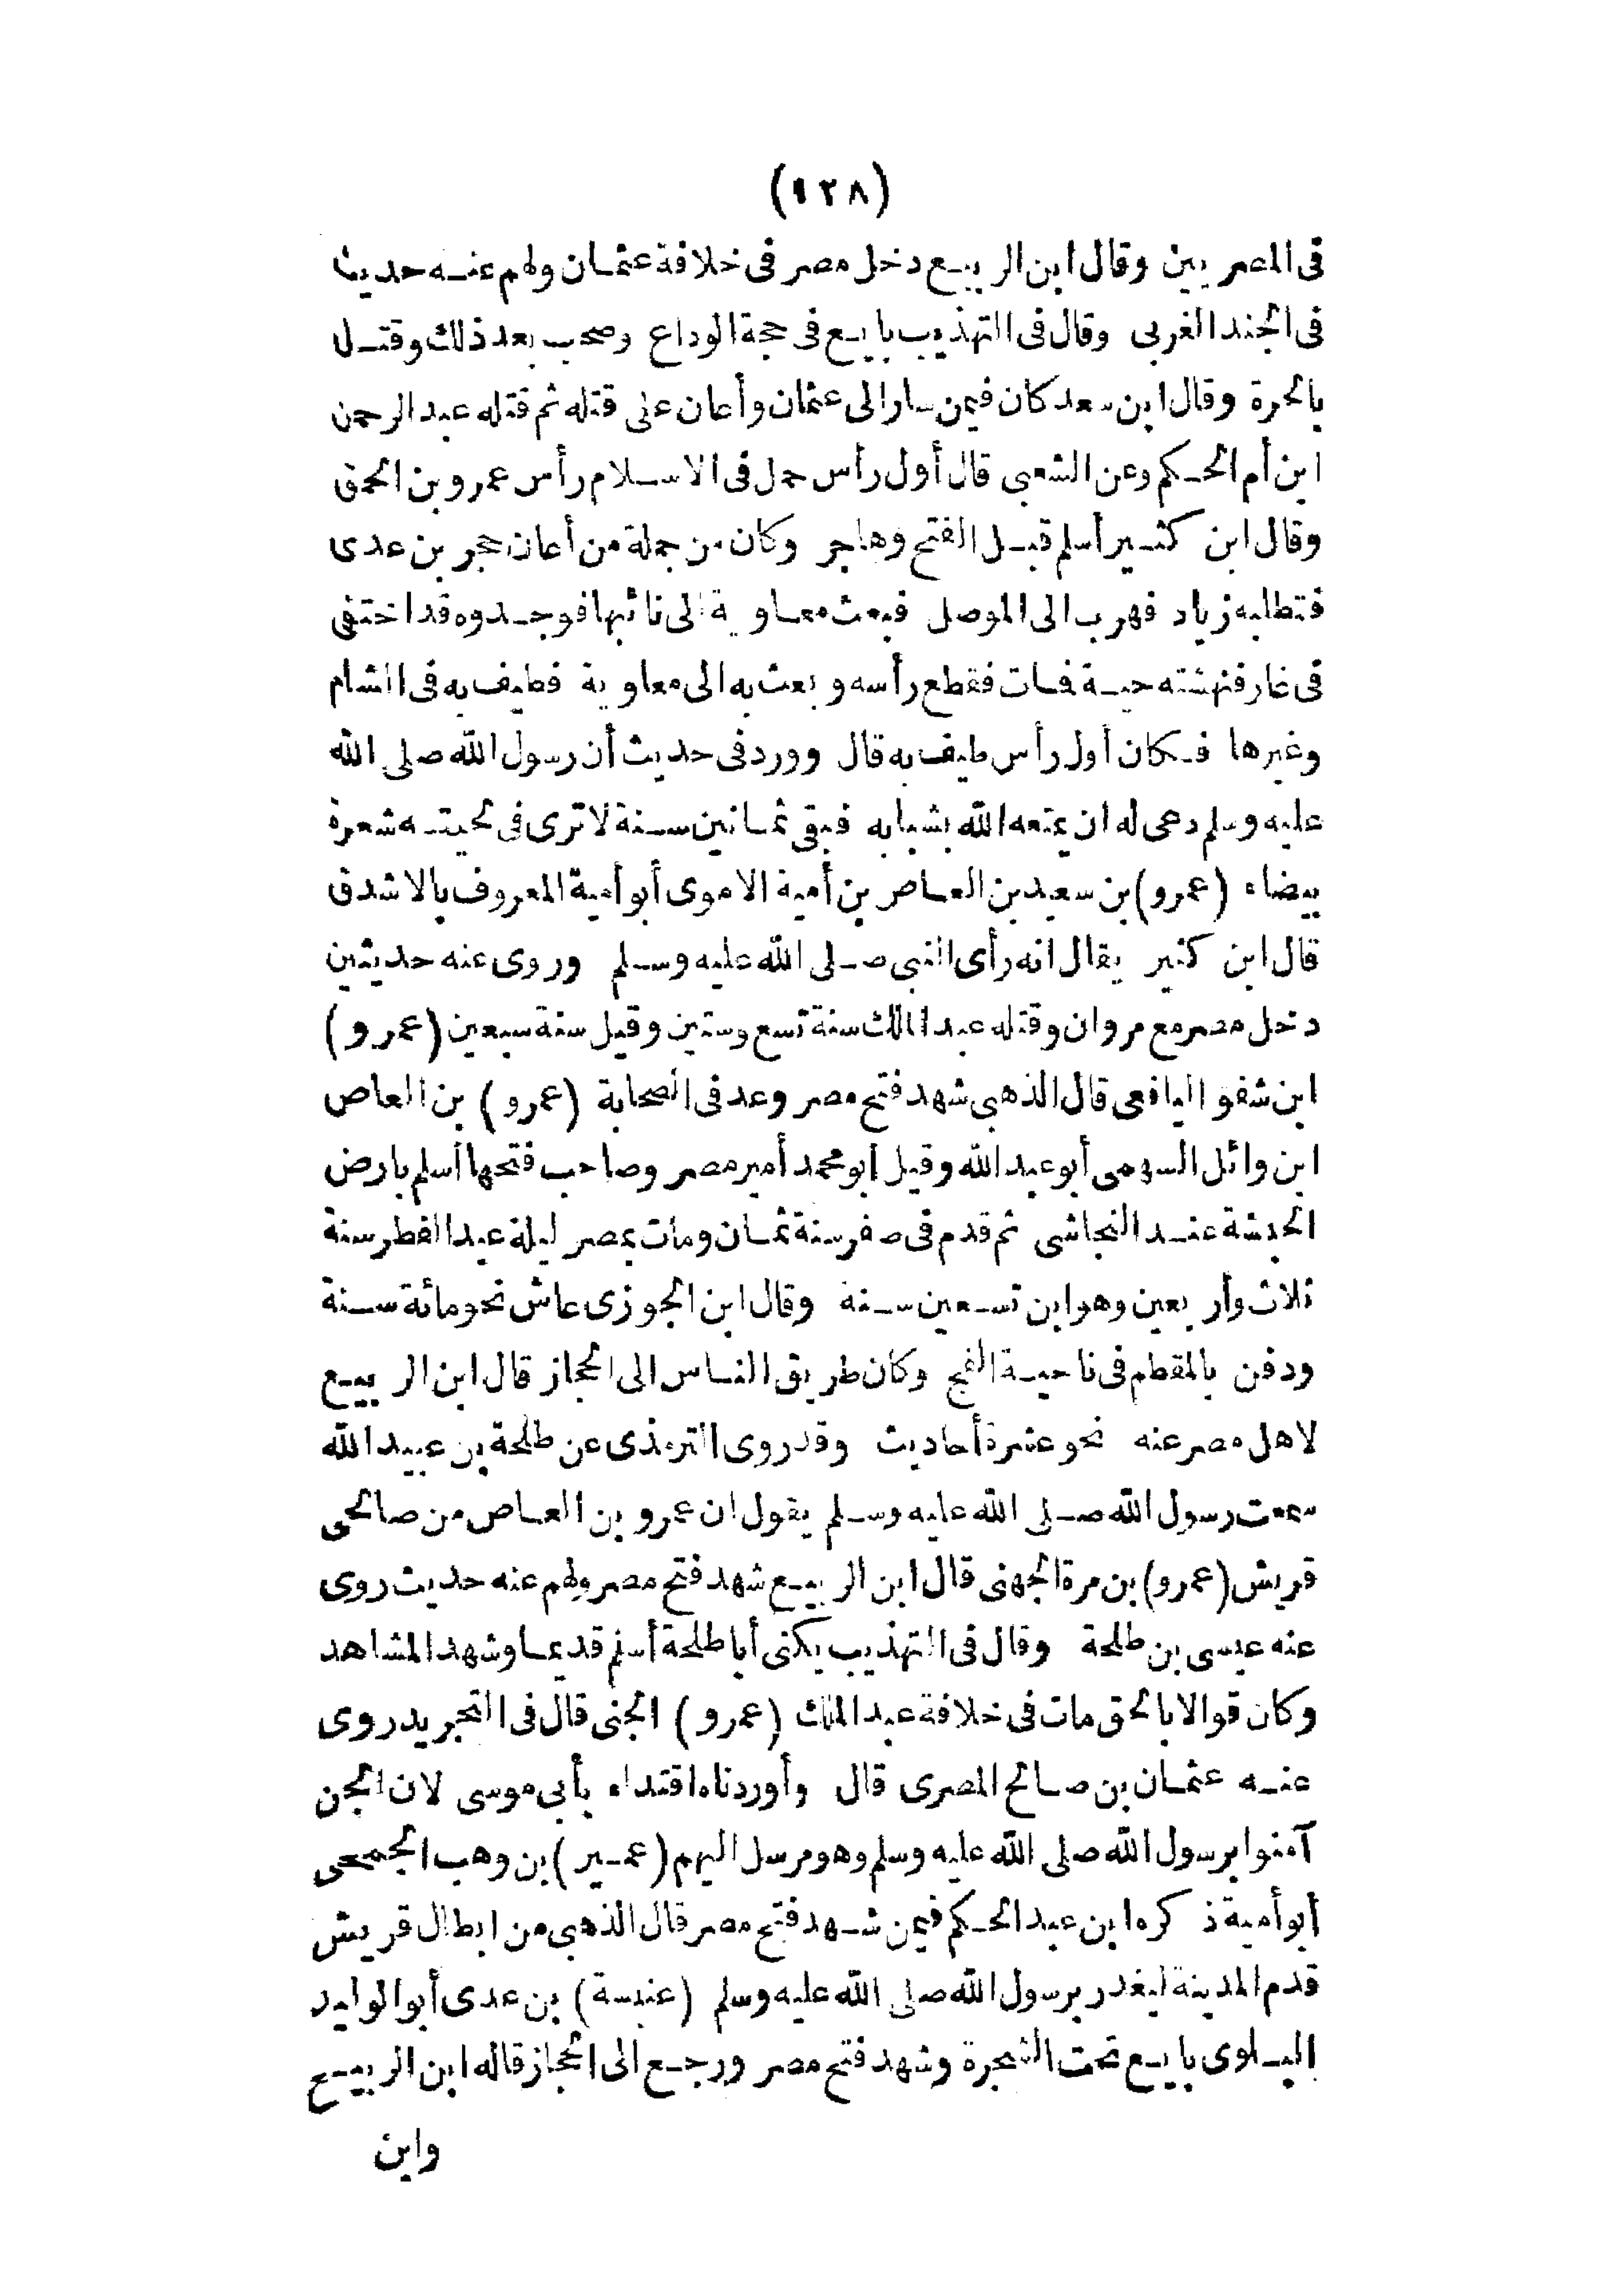 (١٢٨)
فى المصريين وقال ابن الربيع دخل مصر فى خلافة عثمان ولهم عنه حديث
فى الجند الغربى وقال فى التهذيب بايع فى حجة الوداع وصحب بعد ذلك وقتل
بالحرة وقال ابن سعد كان فيمن سار الى عثمان وأعان على قتله ثم قتله عبد الرحمن
ابن أم الحكم وعن الشعبى قال أول رأس حمل فى الاسلام رأس عمرو بن الحمق
وقال ابن كثير أسلم قبل الفتح وهاجر وكان من جملة من أعان حجر بن عدى
فتطلبه زياد فهرب الى الموصل فبعث معاوية الى نائبها فوجدوه قد اختفى
فى غار فنهشته حية فمات فقطع رأسه وبعث به الى معاوية فطيف به فى الشام
وغيرها فكان أول رأس طيف به قال وورد فى حديث أن رسول الله صلى الله
عليه وسلم دعى له ان يمتعه الله بشبابه فبقى ثمانين سنة لا ترى فى لحيته شعرة
بيضاء (عمرو) بن سعيد بن العاصر بن أمية الاموى أبو أمية المعروف بالاشدق
قال ابن كثير يقال انه رأى النبى صلى الله عليه وسلم وروى عنه حديثين
دخل مصر مع مروان وقتله عبد الملك سنة تسع وستين وقيل سنة سبعين (عمرو)
ابن شفو اليافعى قال الذهبى شهد فتح مصر وعد فى الصحابة (عمرو) بن العاص
ابن وائل السهمى أبو عبد الله وقيل أبو محمد أمير مصر وصاحب فتحها أسلم بارض
الحبشة عند النجاشى ثم قدم فى صفر سنة ثمان ومات بمصر ليلة عيد الفطر سنة
ثلاث وأربعين وهو ابن تسعين سنة وقال ابن الجوزى عاش نحو مائة سنة
ودفن بالمقطم فى ناحية الفج وكان طريق الناس الى الحجاز قال ابن الربيع
لاهل مصر عنه نحو عشرة أحاديث وقد روى الترمذى عن طلحة بن عبيد الله
سمعت رسول الله صلى الله عليه وسلم يقول ان عمرو بن العاص من صالحى
قريش (عمرو) بن مرة الجهنى قال ابن الربيع شهد فتح مصر ولهم عنه حديث روى
عنه عيسى بن طلحة وقال فى التهذيب يكنى أبا طلحة أسلم قديما وشهد المشاهد
وكان قوالا بالحق مات فى خلافة عبد الملك (عمرو) الجنى قال فى التجريد روى
عنه عثمان بن صالح المصرى قال وأوردناه اقتداء بأبى موسى لان الجن
آمنوا برسول الله صلى الله عليه وسلم وهو مرسل اليهم (عمير) بن وهب الجمحى
أبو أمية ذكره ابن عبد الحكم فيمن شهد فتح مصر قال الذهبى من ابطال قريش
قدم المدينة ليغدر برسول الله صلى الله عليه وسلم (عنبسة) بن عدى أبو الوليد
البلوى بايع تحت الشجرة وشهد فتح مصر ورجع الى الحجاز قاله ابن الربيع
وابن